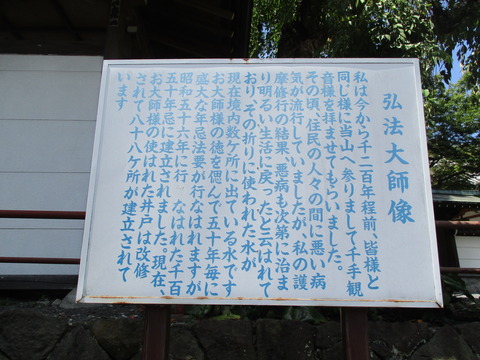 弘法大師像
私は今から千二百年程前、皆様と
同じ様に当山へ参りまして千手観
音様を拝ませてもらいました。
その頃、住民の人々の間に悪い病
気が流行していましたが、私の護
摩修行の結果、悪病も次第に治ま
り明るい生活に戻ったと云はれて
おり、その折りに使われた水が
現在境内数ケ所に出ている水です
お大師様の徳を偲んで五十年毎に
盛大な年忌法要が行なはれますが
昭和五十六年に行 なはれた千百
五十年忌に建立されました。現在
お大師様の使はれた井戸は改修
されて八十八ケ所が建立されて
います